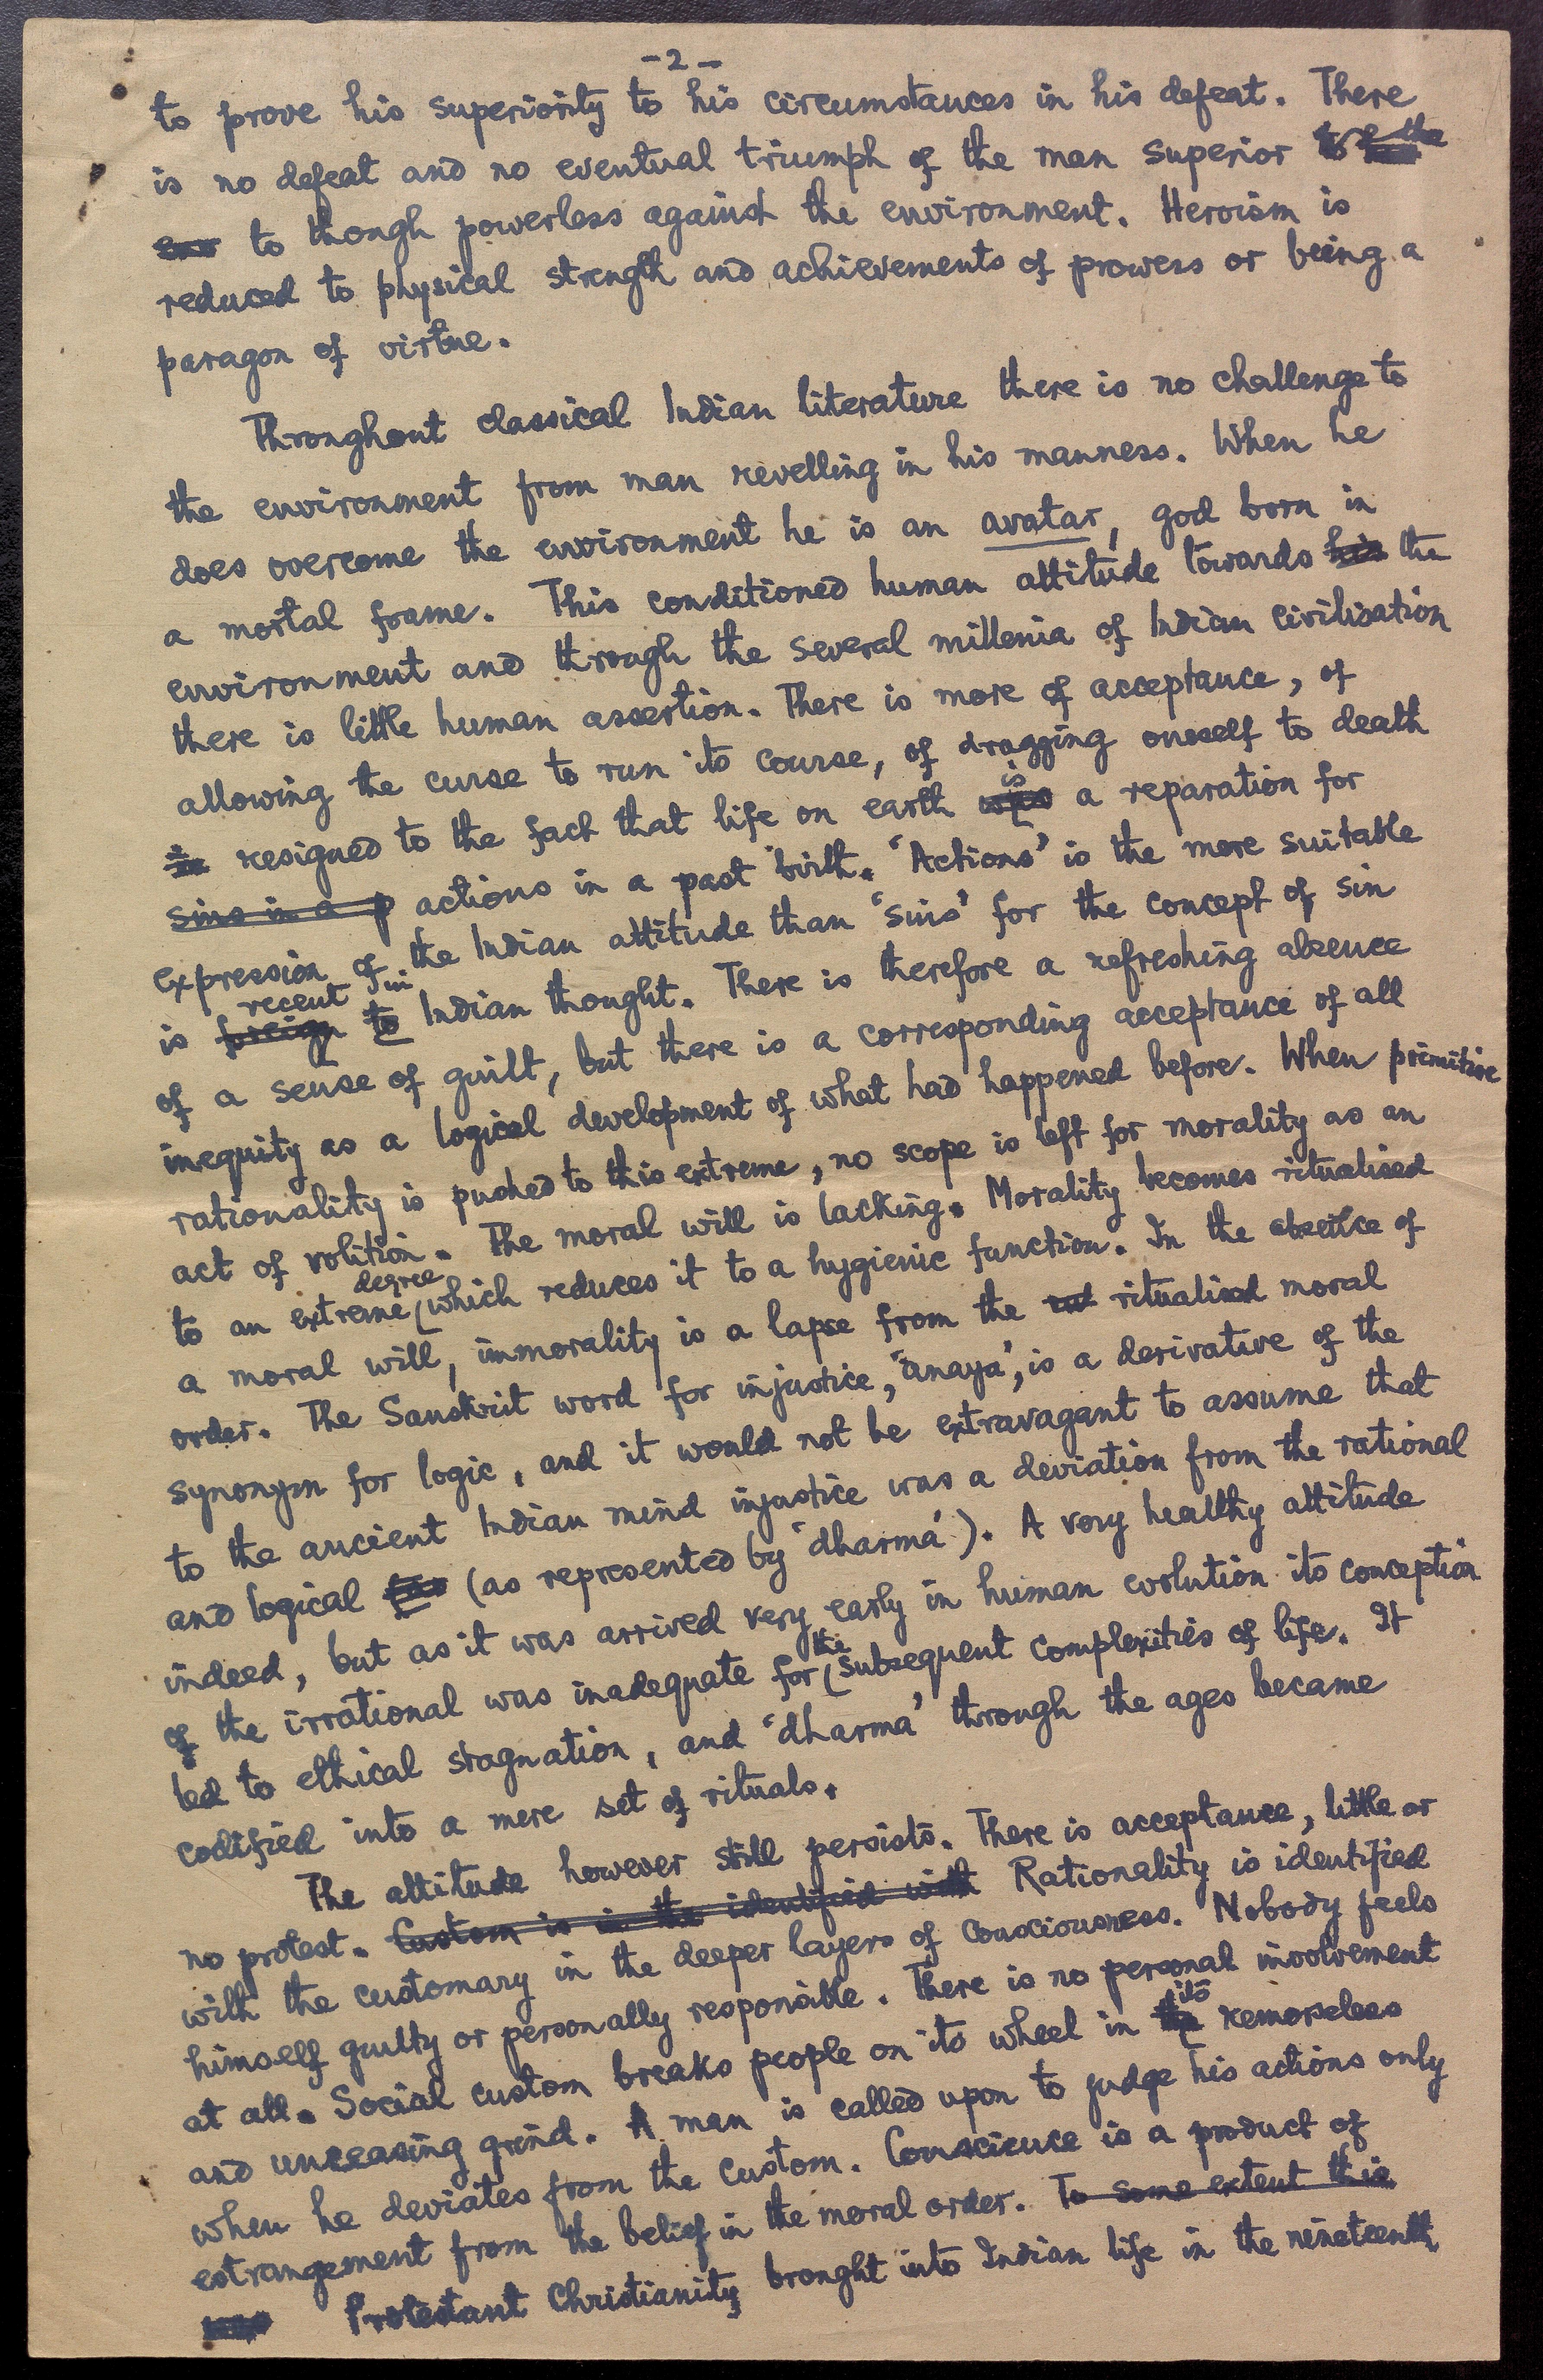 -2-
to prove his superiority to his circumstances in his defeat. There
is no defeat and no eventual triumph of the man superior to
to though powerless against the environment. Heroism is
reduced to physical strength and achievements of prowess or being a
paragon of virtue.
Throughout classical Indian literature there is no challenge to
the environment from man revelling in his manness. When he
does overcome the environment he is an avatar, god born in
a mortal frame. This conditioned human attitude towards his the
environment and through the several millenia of Indian civilisation
there is little human assertion. There is more of acceptance, of
allowing the curse to run its course, of dragging oneself to death
is
in resigned to the fact that life on earth was a reparation for
sins in a p actions in a past birth. 'Actions' is the more suitable
expression of the Indian attitude than 'sins' for the concept of sin
recent in
is foreign to Indian thought. There is therefore a refreshing absence
of a sense of guilt, but there is a corresponding acceptance of all
inequity as a logical development of what had happened before. When primitive
rationality is pushed to this extreme, no scope is left for morality as an
act of volition. The moral will is lacking. Morality becomes ritualised
degree
to an extreme which reduces it to a hygienic function. In the absence of
a moral will, immorality is a lapse from the ritualised moral
order. The Sanskrit word for injustice, 'anaya', is a derivative of the
synonym for logic, and it would not be extravagant to assume that
to the ancient Indian mind injustice was a deviation from the rational
and logical (as represented by 'dharma'). A very healthy attitude
indeed, but as it was arrived very early in human evolution its conception
the
of the irrational was inadequate for subsequent complexities of life. It
led to ethical stagnation, and 'dharma' through the ages became
codified into a mere set of rituals.
The attitude however still persists. There is acceptance, little or
no protest. Custom is in the identified with Rationality is identified
with the customary in the deeper layers of consciousness. Nobody feels
himself guilty or personally responsible. There is no personal involvement
its
at all. Social custom breaks people on its wheel in the remorseless
and unceasing grind. A man is called upon to judge his actions only
when he deviates from the custom. Conscience is a product of
estrangement from the belief in the moral order. To some extent this
was Protestant Christianity brought into Indian life in the nineteenth